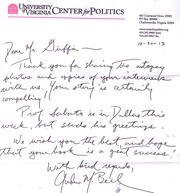 UNIVERSITY of VIRGINIA CENTER for POLITICS
12-30-13
Dear Mr. Griffin—
Thank you for sharing the autopsy
photos and copies of your interviews
with us. Your story is certainly
compelling.
Prof. Sabato is in Dallas this
week but sends his greetings.
We wish you the best and hope
that your book is a great success!
With kind regards,